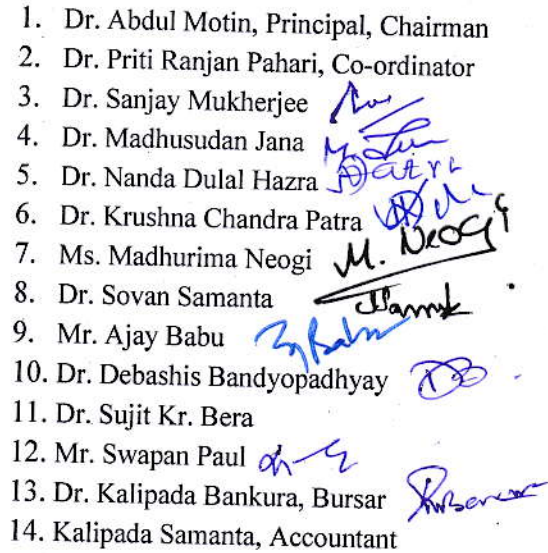 1. Dr. Abdul Motin, Principal, Chairman
2. Dr. Priti Ranjan Pahari, Co-ordinator
3. Dr. Sanjay Mukherjee
4. Dr. Madhusudan Jana
5. Dr. Nanda Dulal Hazra
6. Dr. Krushna Chandra Patra
7. Ms. Madhurima Neogi M. Neogi
8. Dr. Sovan Samanta
9. Mr. Ajay Babu
10. Dr. Debashis Bandyopadhyay
11. Dr. Sujit Kr. Bera
12. Mr. Swapan Paul
13. Dr. Kalipada Bankura, Bursar
14. Kalipada Samanta, Accountant